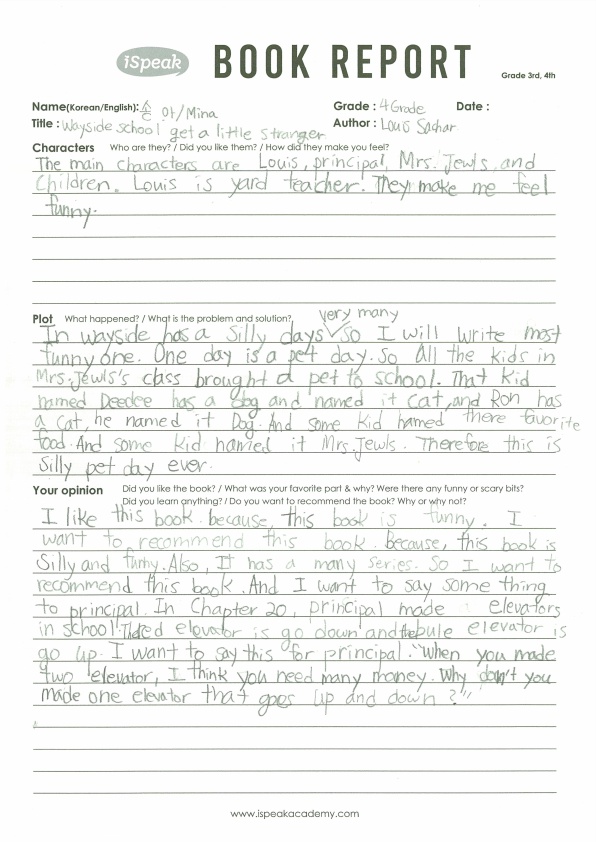 iSpeak BOOK REPORT
Grade 3rd, 4th
Name(Korean/English): 송 아/Mina Grade : 4 Grade Date :
Title : Wayside school get a little stranger Author : Louis Sachar
Characters Who are they? / Did you like them? / How did they make you feel?
The main characters are Louis, principal, Mrs. Jewls and
Children. Louis is yard teacher. They make me feel
funny.
Plot What happened? / What is the problem and solution?
very many
In wayside has a silly days✓So I will write most
funny one. One day is a pet day. So All the kids in
Mrs. Jewls's class brought a pet to school. That kid
named Deedee has a dog and named it Cat, and Ron has
a cat, he named it Dog. And some kid named there favorite
food. And some kid named it Mrs. Jewls. Therefore this is
silly pet day ever.
Your opinion Did you like the book? / What was your favorite part & why? Were there any funny or scary bits?
Did you learn anything? / Do you want to recommend the book? Why or why not?
I like this book. because, this book is funny. I
want to recommend this book. Because, this book is
Silly and funny. Also, It has a many series. So I want to
recommend this book. And I want to say some thing
to principal. In Chapter 20, principal made elevators
in school. The red elevator is go down and the bule elevator is
go up. I want to say this for principal. "When you made
two elevator, I think you need many money. Why don't you
made one elevator that goes up and down ?"
www.ispeakacademy.com